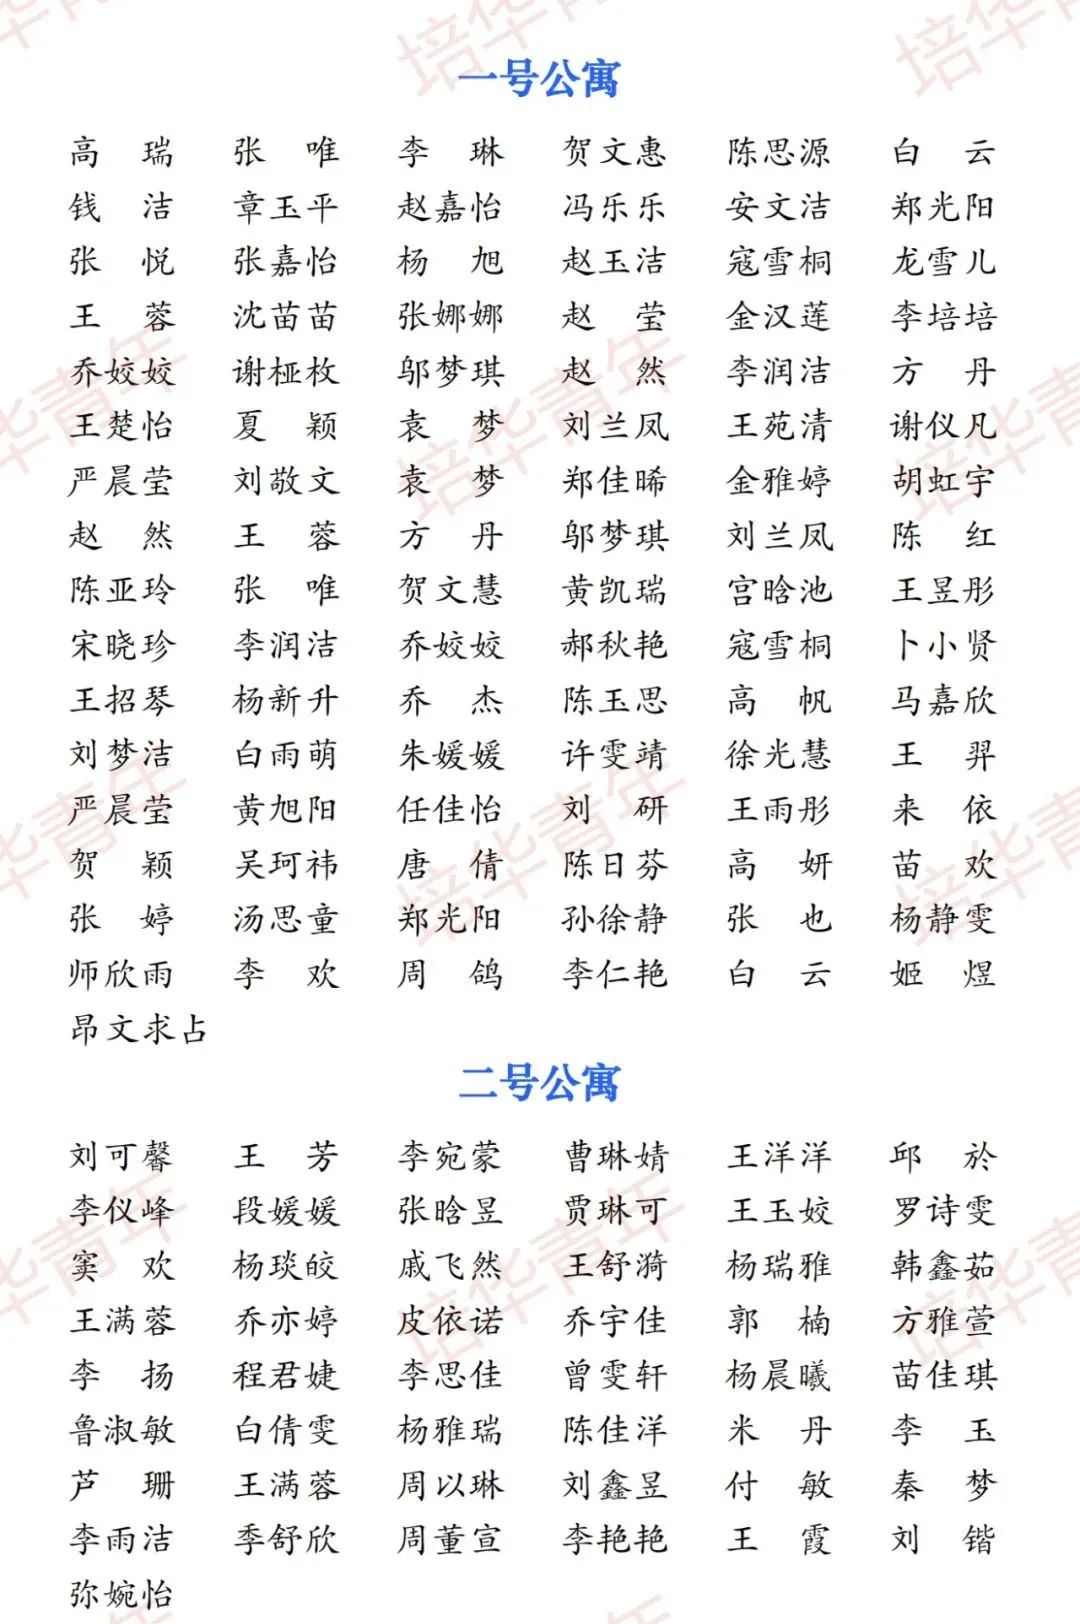 一号公寓
高 瑞 张 唯 李 琳 贺文惠 陈思源 白 云
钱 洁 章玉平 赵嘉怡 冯乐乐 安文洁 郑光阳
张 悦 张嘉怡 杨 旭 赵玉洁 寇雪桐 龙雪儿
王 蓉 沈苗苗 张娜娜 赵 莹 金汉莲 李培培
乔姣姣 谢桠枚 邬梦琪 赵 然 李润洁 方 丹
王楚怡 夏 颖 袁 梦 刘兰凤 王苑清 谢仪凡
严晨莹 刘敬文 袁 梦 郑佳晞 金雅婷 胡虹宇
赵 然 王 蓉 方 丹 邬梦琪 刘兰凤 陈 红
陈亚玲 张 唯 贺文慧 黄凯瑞 宫晗池 王昱彤
宋晓珍 李润洁 乔姣姣 郝秋艳 寇雪桐 卜小贤
王招琴 杨新升 乔 杰 陈玉思 高 帆 马嘉欣
刘梦洁 白雨萌 朱媛媛 许雯靖 徐光慧 王 羿
严晨莹 黄旭阳 任佳怡 刘 研 王雨彤 来 依
贺 颖 吴珂祎 唐 倩 陈日芬 高 妍 苗 欢
张 婷 汤思童 郑光阳 孙徐静 张 也 杨静雯
师欣雨 李 欢 周 鸽 李仁艳 白 云 姬 煜
昂文求占
二号公寓
刘可馨 王 芳 李宛蒙 曹琳婧 王洋洋 邱 於
李仪峰 段媛媛 张晗昱 贾琳可 王玉姣 罗诗雯
窦 欢 杨琰皎 戚飞然 王舒漪 杨瑞雅 韩鑫茹
王满蓉 乔亦婷 皮依诺 乔宇佳 郭 楠 方雅萱
李 扬 程君婕 李思佳 曾雯轩 杨晨曦 苗佳琪
鲁淑敏 白倩雯 杨雅瑞 陈佳洋 米 丹 李 玉
芦 珊 王满蓉 周以琳 刘鑫昱 付 敏 秦 梦
李雨洁 季舒欣 周董宣 李艳艳 王 霞 刘 锴
弥婉怡
培华青年